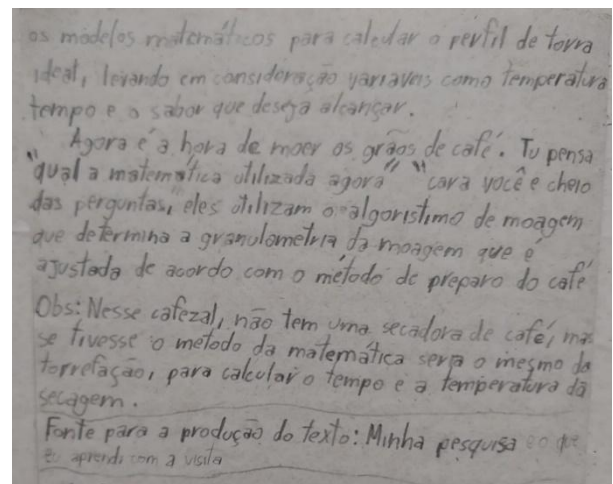 os modelos matemáticos para calcular o perfil de torra
ideal, levando em consideração variaveis como temperatura
tempo e o sabor que deseja alcançar.
Agora é a hora de moer os grãos de café. Tu pensa
"qual a matemática utilizada agora" "cara você e cheio
das perguntas, eles utilizam o algoristimo de moagem
que determina a granulometria da moagem que é
ajustada de acordo com o método de preparo do café
Obs: Nesse cafezal, não tem uma secadora de café, mas
se tivesse o método da matemática seria o mesmo da
torrefação, para calcular o tempo e a temperatura da
secagem.
Fonte para a produção do texto: Minha pesquisa e o que
eu aprendi com a visita